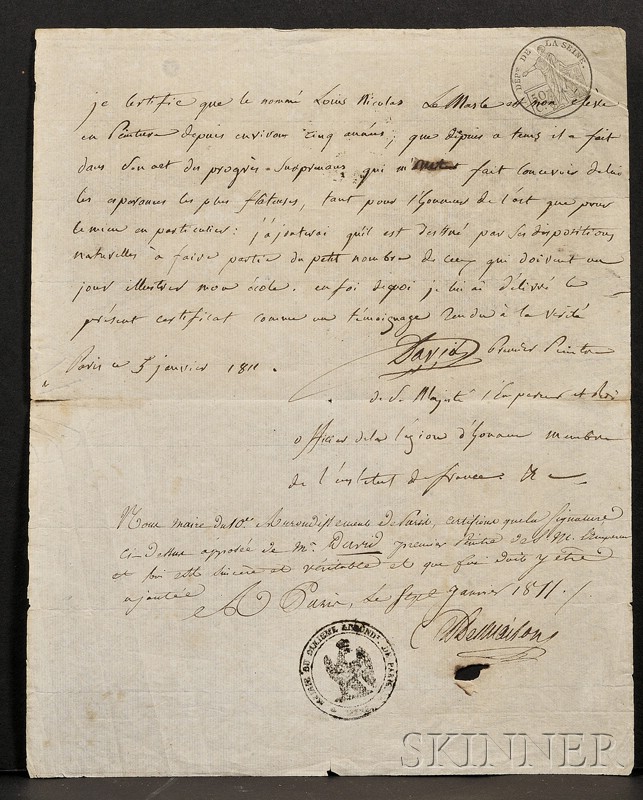 DEPT DE LA SEINE.
je certifie que le nommé Louis Nicolas Le Masle est mon élève
en Peinture depuis environ cinq années; que depuis ce tems il a fait
dans son art des progrès qui m' fait concevoir de lui
les esperances les plus flateuses, tant pour l'honneur de l'art que pour
le mien en particulier: j'ajouterai qu'il est destiné par ses dispositions
naturelles à faire partie du petit nombre de ceux qui doivent un
jour illustrer mon école. en foi de quoi je lui ai délivré le
présent certificat comme un témoignage rendu à la vérité
Paris ce 5 janvier 1811.
David premier Peintre
de S. Majesté l'Empereur et Roi
officier de la légion d'honneur membre
de l'institut de france. &c
Nous maire du 10e. Arrondissement de Paris, certifions que la Signature
ci-dessus apposée de Mr. David premier Peintre de S. M. l'empereur
et Roi est sincere et véritable et que foi doit y être
ajoutée. A Paris, Le Sept Janvier 1811.
MAIRIE DU DIXIEME ARRONDT. DE PARIS
SKINNER